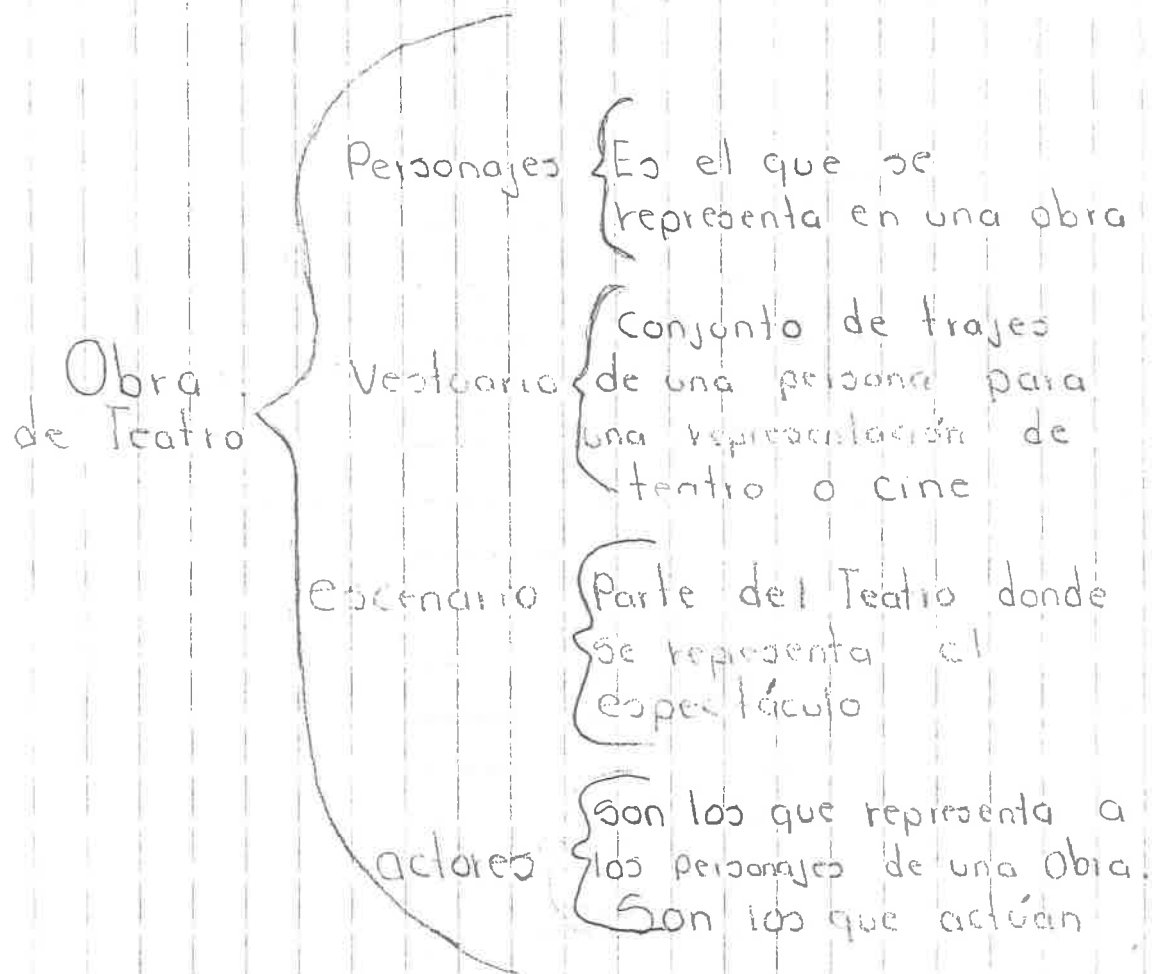 Obra
de Teatro
Personajes
Es el que se
representa en una obra
Vestuario
Conjunto de trajes
de una persona para
una representación de
teatro o cine
escenario
Parte del Teatro donde
se representa el
espectáculo
actores
Son los que representa a
los personajes de una Obra.
Son los que actúan